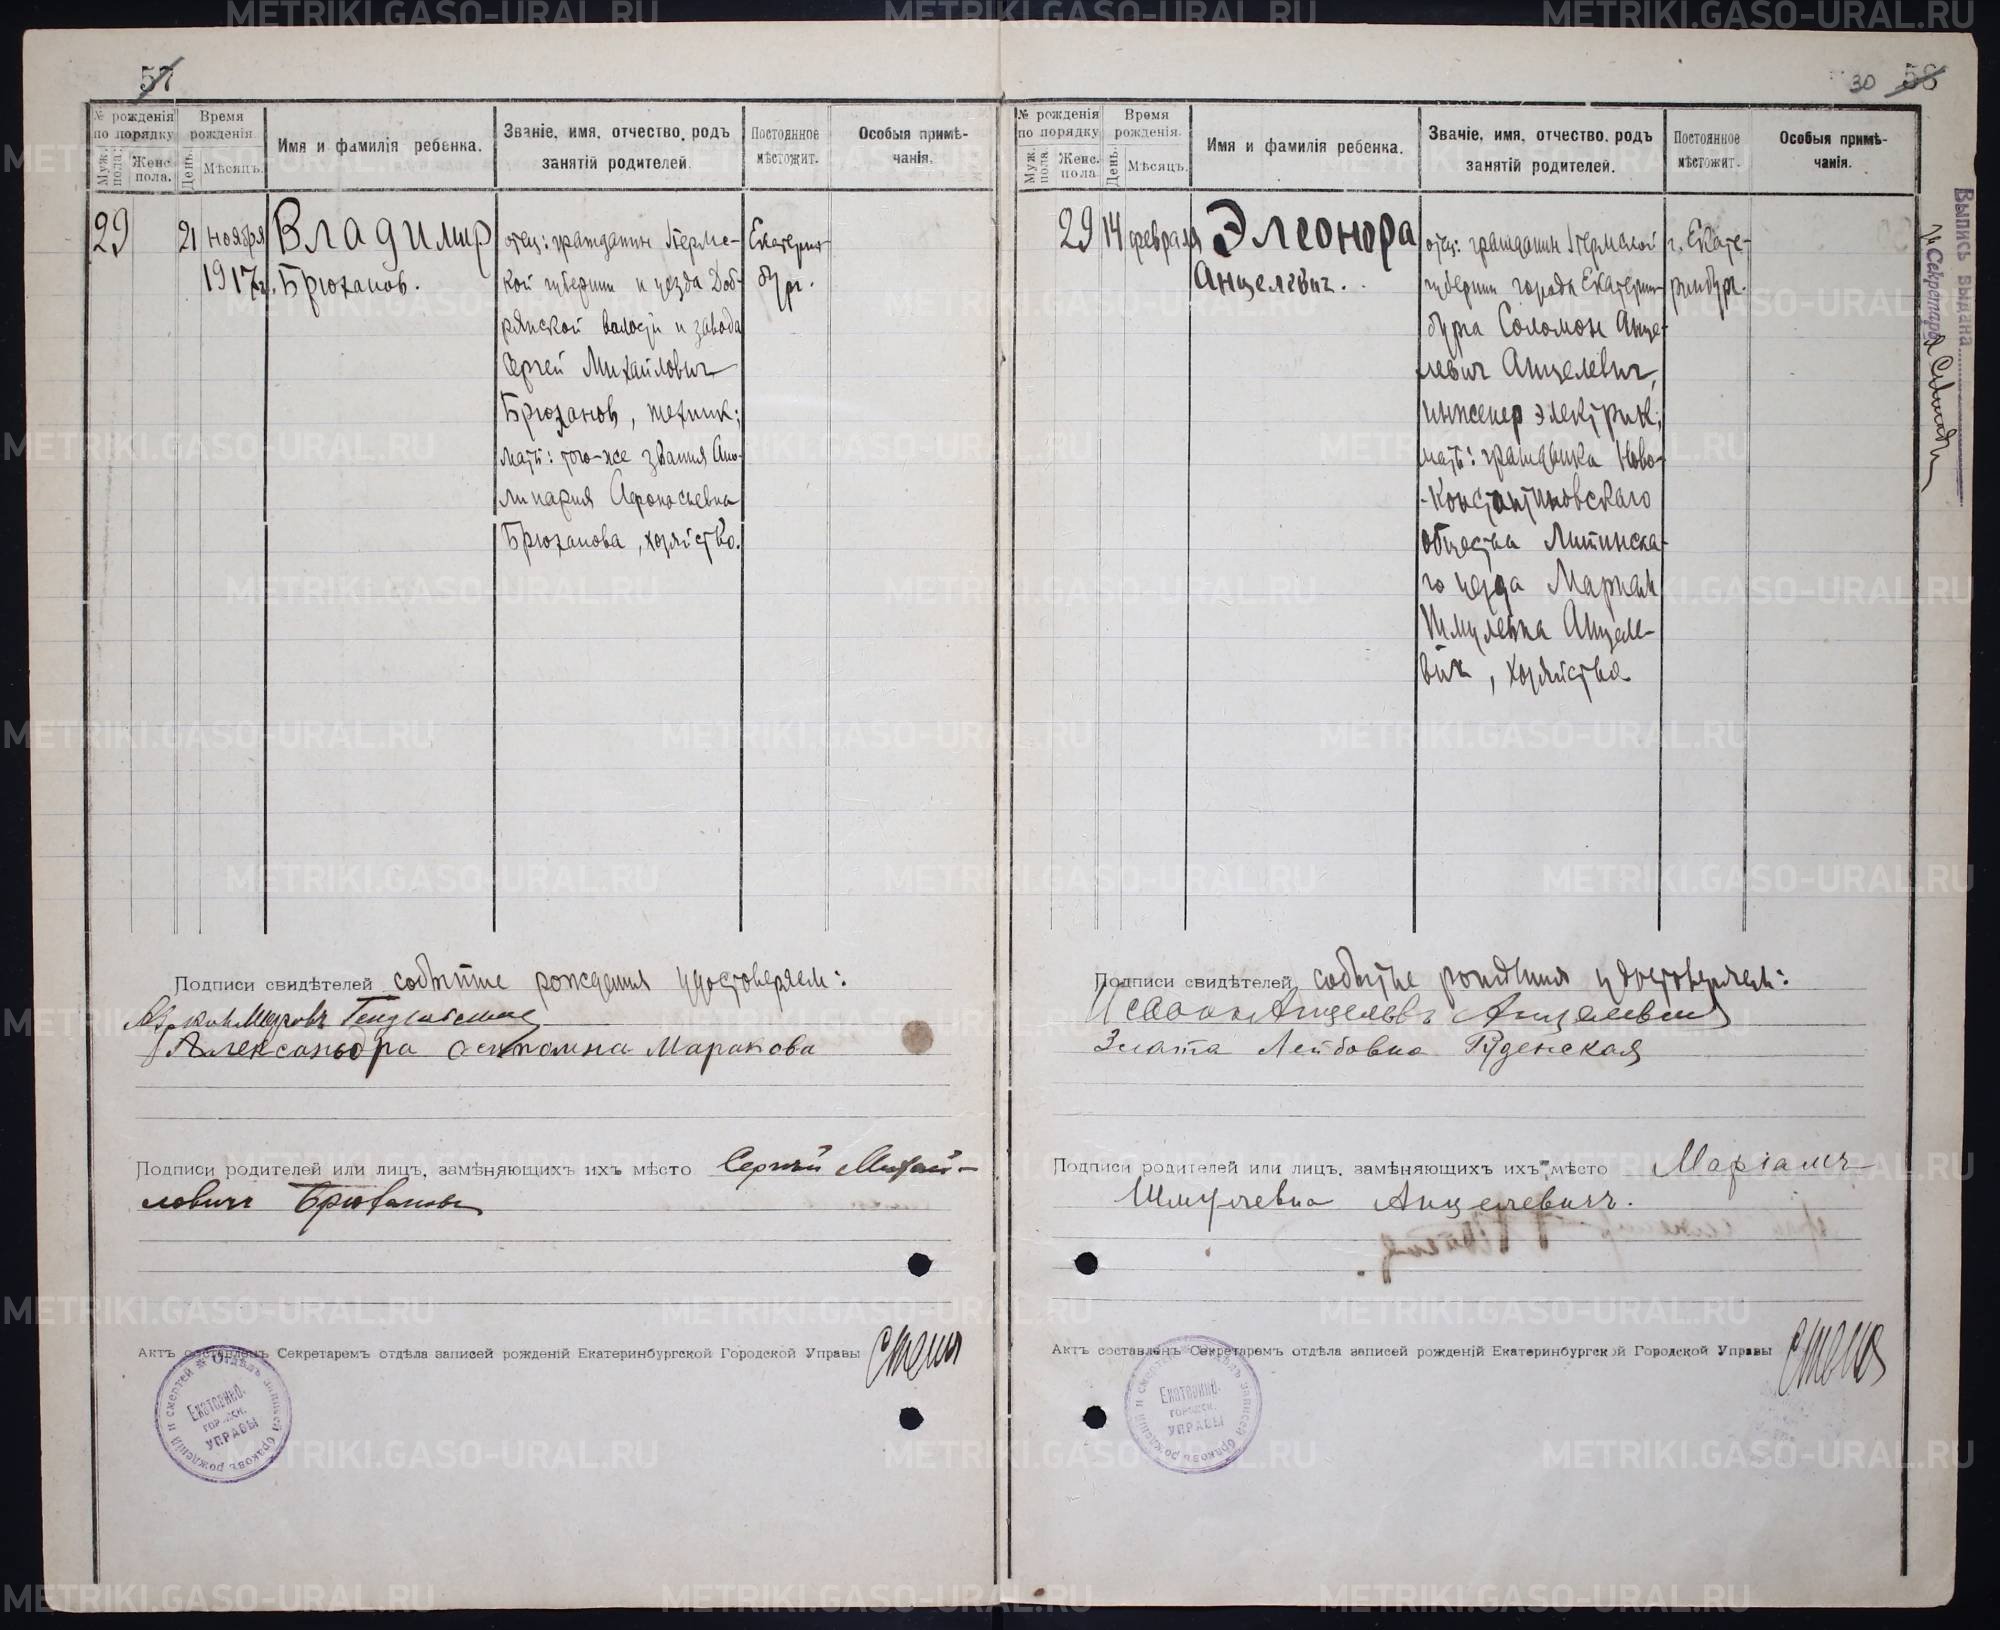 57
№ рожденія по порядку
Муж. пола.
Женс. пола.
Время рожденія.
День.
Мѣсяцъ.
Имя и фамилія ребенка.
Званіе, имя, отчество, родъ
занятій родителей.
Постоянное
мѣстожит.
Особыя примѣ-
чанія.
29 21 ноября
1917г.
Владимир
Брюханов.
отец: гражданин Пермс-
кой губернии и уезда Доб-
рянской волости и завода
Сергей Михайлович
Брюханов, техник;
мать: того-же звания Апо-
линария Афонасьевна
Брюханова, хозяйство.
Екатерин-
бург.
Подписи свидѣтелей событие рождения удостоверяем:
Александра Осиповна Маракова
Подписи родителей или лицъ, замѣняющихъ ихъ мѣсто Сергѣй Михай-
ловичъ Брюхановъ
Актъ составленъ Секретаремъ отдѣла записей рожденій Екатеринбургской Городской Управы
Отдѣлъ записей браковъ рожденій и смертей
Екатеринб.
городск.
УПРАВЫ
30 58
№ рожденія по порядку
Муж. пола.
Женс. пола
Время рожденія.
День.
Мѣсяцъ.
Имя и фамилія ребенка.
Званіе, имя, отчество, родъ
занятій родителей.
Постоянное
мѣстожит.
Особыя примѣ-
чанія.
29 14 февраля
Элеонора
Анцелевич.
отец: гражданин Пермской
губернии города Екатерин-
бурга Соломон Анце-
левич Анцелевич,
инженер электрик;
мать: гражданка Ново-
-Константиновскаго
общества Литинска-
го уезда Мариам
Шмулевна Анцеле-
вич, хозяйство
г. Екате-
ринбург.
Выпись выдана
Секретарь
Подписи свидѣтелей событие рождения удостоверяем:
Анцелевъ Анцелевич
Злата Лейбовна Руденская
Подписи родителей или лицъ, замѣняющихъ ихъ мѣсто Маріамъ
Шмулевна Анцелевичъ.
Актъ составленъ Секретаремъ отдѣла записей рожденій Екатеринбургской Городской Управы
Отдѣлъ записей браковъ рожденій и смертей
Екатеринб.
городск.
УПРАВЫ
METRIKI.GASO-URAL.RU